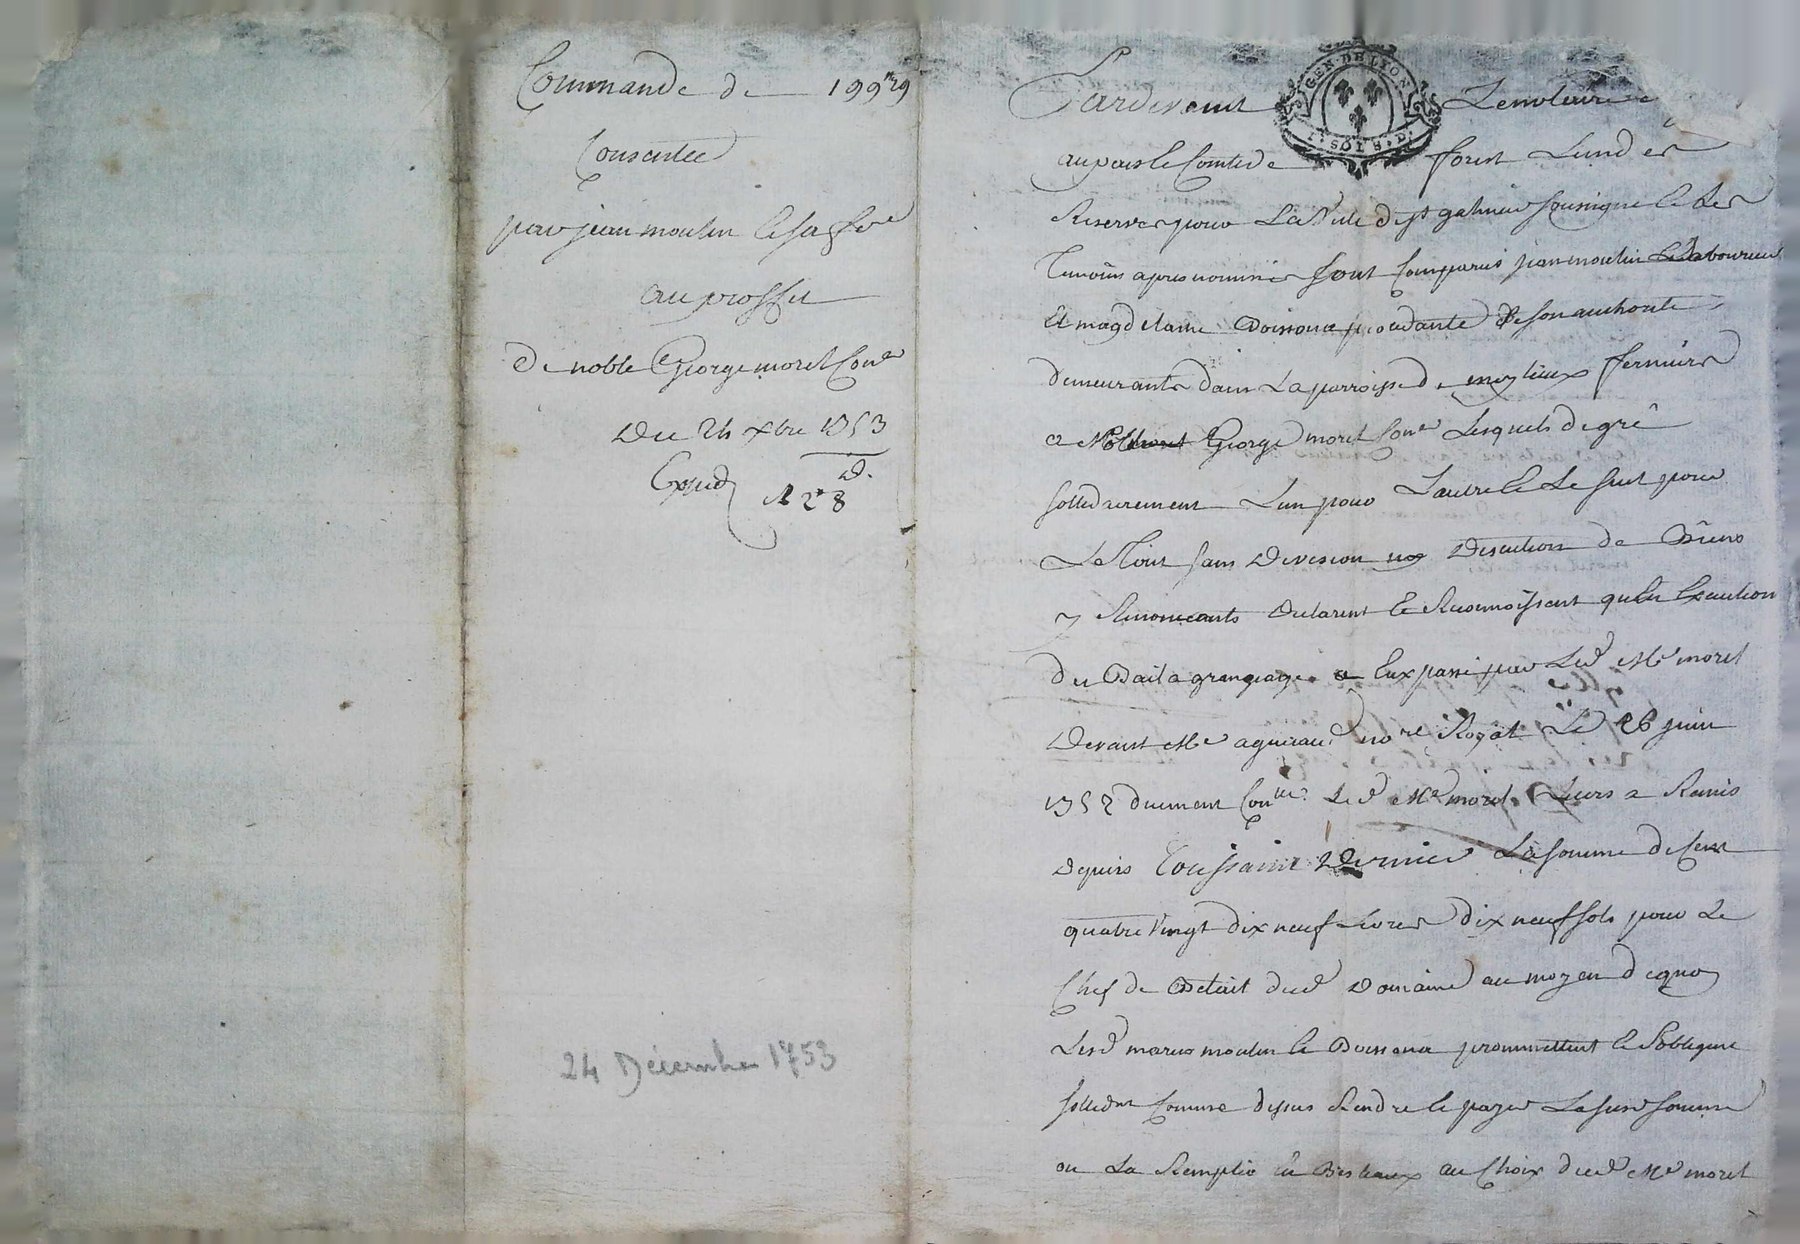 Commande de 199ᵗᵗ19
Consentie
par jean moulin & sa fe
au proffit
de noble George morel Coner
Du 24 xbre 1753
Exped
D.
R 2ᵗ 8
24 Décembre 1753
GEN DE LYON
Pardevant Le notaire
au païs & Comté de forest Lun des
Reservés pour La Ville de st galmier soussigné & Les
Temoins apres nommés sont Comparus jean moulin Laboureur
Et magdelaine procedante de son authorité
demeurants dans La parroisse de meylieux fermiers
a Noble George morel Coner Lesquels de gré
sollidairement Lun pour Lautre & Le seul pour
Le Tout sans Division ny Discution de Biens
y Renonceants Declarent & Reconnoissent quen Execution
du Bail a grangeage a Eux passé par Led Me morel
Devant Me nore Royal Le 26 juin
1752 duement Conllé Led Me morel Leurs a Remis
Depuis Toussaint Dernier La somme de Cent
quatre Vingt dix neuf Livres dix neuf sols pour Le
Chef de Betail dud Domaine au moyen dequoy
Lesd mariés moulin & promettent & Sobligent
sollidnt Comme dessus Rendre & payer La susd somme
ou La Remplir En Bestiaux au Choix dud Me morel